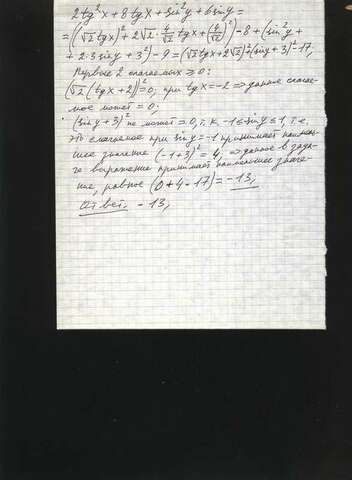 2tg²x + 8tgx + sin²y + 6siny =
= ((√2 tgx)² + 2√2 · 4/√2 tgx + (4/√2)²) - 8 + (sin²y +
+ 2·3 siny + 3²) - 9 = (√2 tgx + 2√2)² + (siny + 3)² - 17,
Первые 2 слагаемых ≥ 0:
(√2(tgx + 2))² = 0, при tgx = -2 ⇒ данное слагае-
мое может = 0.
(siny + 3)² не может = 0, т.к. -1 ≤ siny ≤ 1, т.е.
это слагаемое при siny = -1 принимает наимень-
шее значение (-1+3)² = 4, ⇒ данное в зада-
че выражение принимает наименьшее значе-
ние, равное (0 + 4 - 17) = -13,
Ответ: -13,